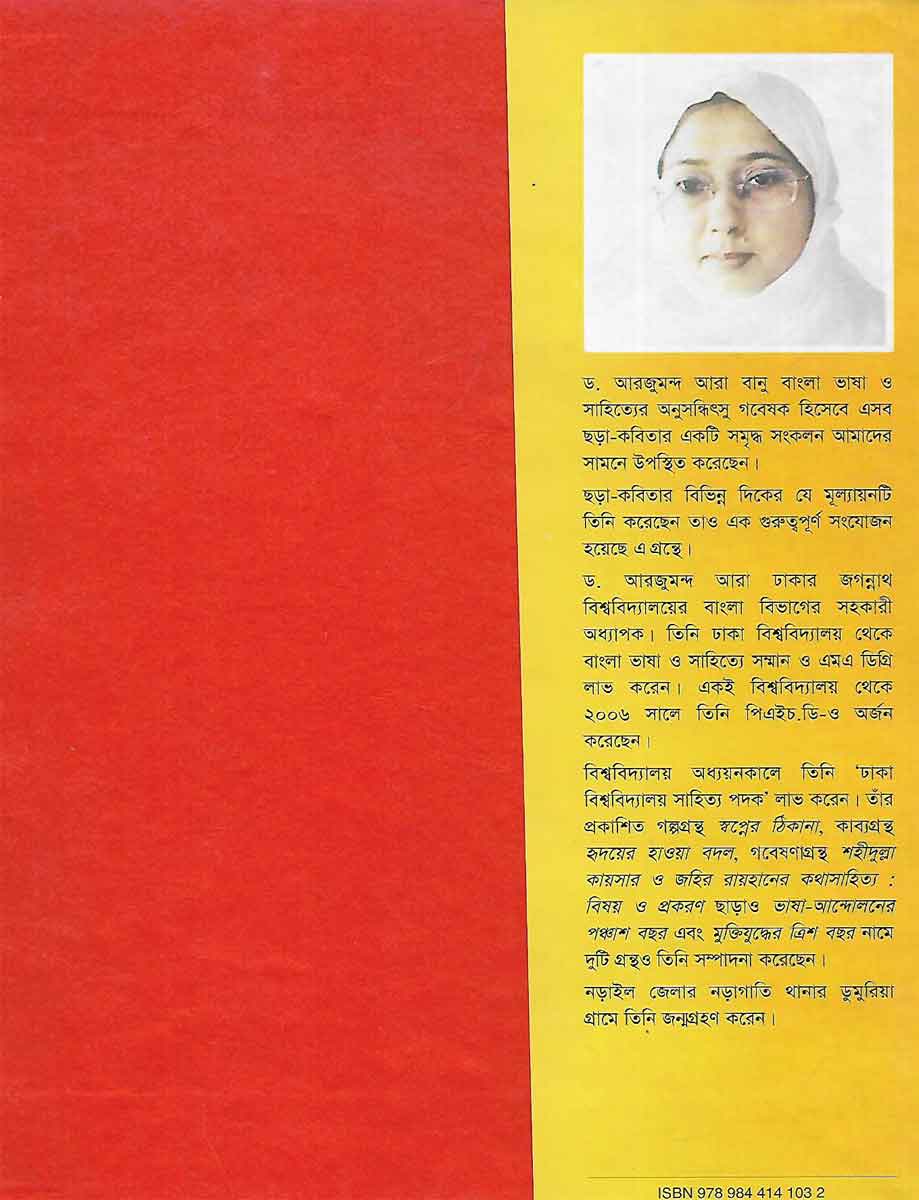 ড. আরজুমন্দ আরা বানু বাংলা ভাষা ও
সাহিত্যের অনুসন্ধিৎসু গবেষক হিসেবে এসব
ছড়া-কবিতার একটি সমৃদ্ধ সংকলন আমাদের
সামনে উপস্থিত করেছেন।
ছড়া-কবিতার বিভিন্ন দিকের যে মূল্যায়নটি
তিনি করেছেন তাও এক গুরুত্বপূর্ণ সংযোজন
হয়েছে এ গ্রন্থে।
ড. আরজুমন্দ আরা ঢাকার জগন্নাথ
বিশ্ববিদ্যালয়ের বাংলা বিভাগের সহকারী
অধ্যাপক। তিনি ঢাকা বিশ্ববিদ্যালয় থেকে
বাংলা ভাষা ও সাহিত্যে সম্মান ও এমএ ডিগ্রি
লাভ করেন। একই বিশ্ববিদ্যালয় থেকে
২০০৬ সালে তিনি পিএইচ.ডি-ও অর্জন
করেছেন।
বিশ্ববিদ্যালয় অধ্যয়নকালে তিনি ‘ঢাকা
বিশ্ববিদ্যালয় সাহিত্য পদক’ লাভ করেন। তাঁর
প্রকাশিত গল্পগ্রন্থ স্বপ্নের ঠিকানা, কাব্যগ্রন্থ
হৃদয়ের হাওয়া বদল, গবেষণাগ্রন্থ শহীদুল্লা
কায়সার ও জহির রায়হানের কথাসাহিত্য :
বিষয় ও প্রকরণ ছাড়াও ভাষা-আন্দোলনের
পঞ্চাশ বছর এবং মুক্তিযুদ্ধের ত্রিশ বছর নামে
দুটি গ্রন্থও তিনি সম্পাদনা করেছেন।
নড়াইল জেলার নড়াগাতি থানার ডুমুরিয়া
গ্রামে তিনি জন্মগ্রহণ করেন।
ISBN 978 984 414 103 2